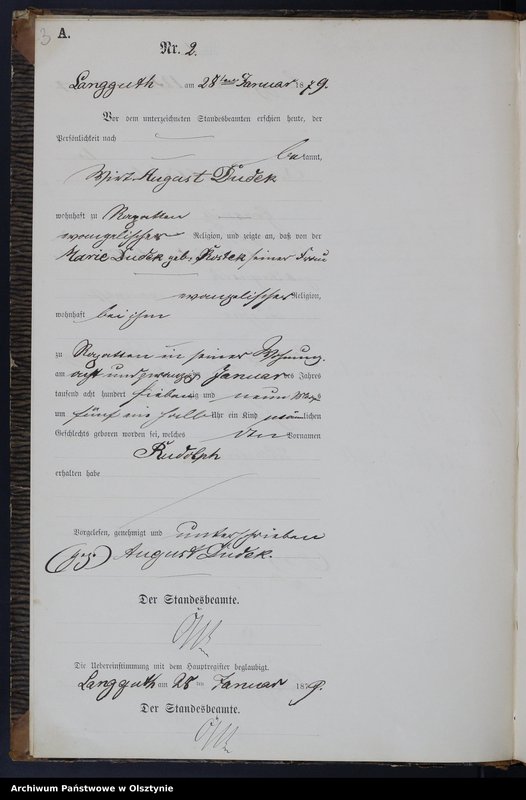 3
A.
Nr. 2.
Langguth am 28ten Januar 1879.
Vor dem unterzeichneten Standesbeamten erschien heute, der
Persönlichkeit nach
bekannt,
Wirt August Dudek
wohnhaft zu
evangelischer Religion, und zeigte an, daß von der
Marie Dudek geb. Kostek seiner Frau
evangelischer Religion,
wohnhaft bei ihm
zu in seiner Wohnung
am acht und zwanzig Januar des Jahres
tausend acht hundert siebenzig und neun
um fünf ein halb Uhr ein Kind männlichen
Geschlechts geboren worden sei, welches den Vornamen
Rudolph
erhalten habe
Vorgelesen, genehmigt und unterschrieben
(gez.) August Dudek.
Der Standesbeamte.
Die Uebereinstimmung mit dem Hauptregister beglaubigt.
Langguth am 28ten Januar 1879.
Der Standesbeamte.
Archiwum Państwowe w Olsztynie